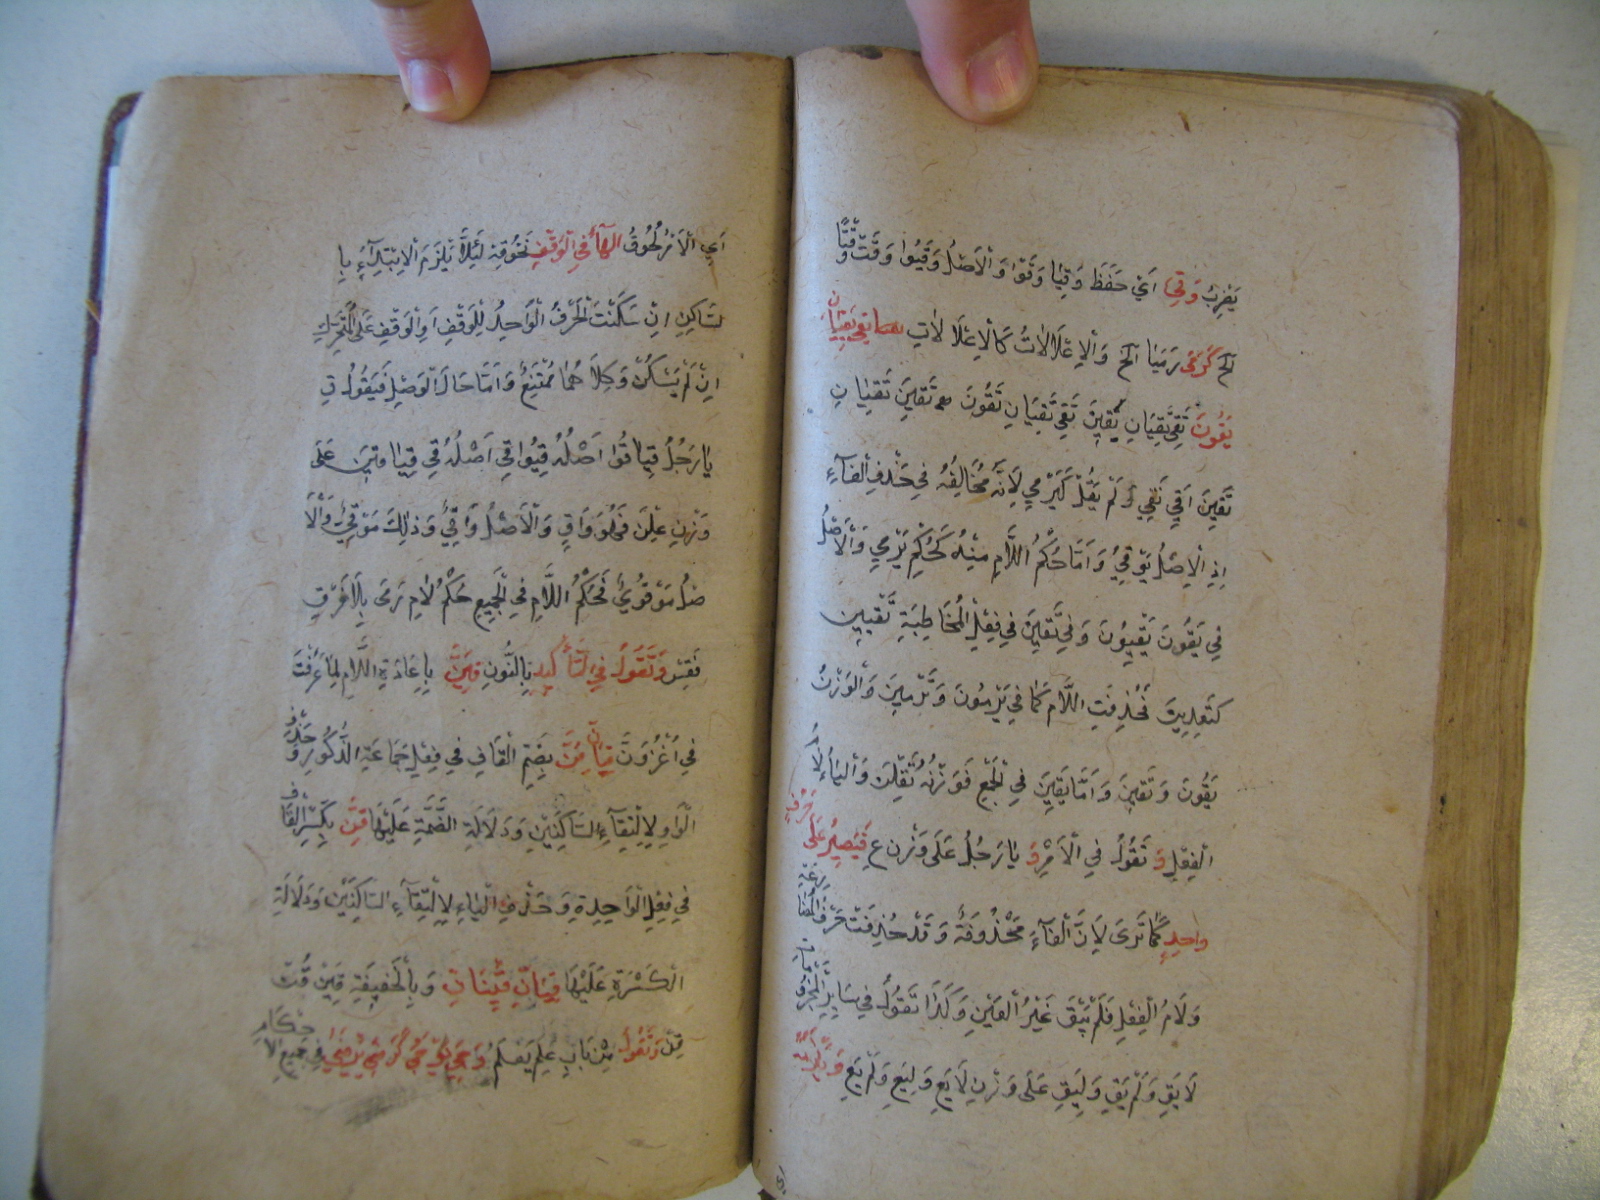 يَضْرِبُ وَقَى اَيْ حَفَظَ وَقَيَا وَقَوْا وَالْاَصْلُ وَقَيُوا وَقَتْ وَقَتَا
الخ كَرَمَى رَمَيَا الخ وَالْاِعْلَالَاتُ كَالْاِعْلَالَاتِ يَقِى يَقِيَانِ
يَقُونَ تَقِى تَقِيَانِ يَقِينَ تَقِى تَقِيَانِ تَقُونَ تَقِينَ تَقِيَانِ
تَقِينَ اَقِي نَقِي وَلَمْ يَقُلْ كَيَرْمِي لِاَنَّهُ مُخَالِفُهُ فِي حَذْفِ الْفَاءِ
اِذِ الْاَصْلُ يَوْقِيُ وَاَمَّا حُكْمُ اللَّامِ مِنْهُ كَحُكْمِ يَرْمِي وَالْاَصْلُ
فِي يَقُونَ يَقْيِوُنَ وَفِي تَقِينَ فِي فِعْلِ الْمُخَاطِبَةِ تَقْيِينَ
فَحُذِفَتِ اللَّامُ كَمَا فِي يَرْمُونَ وَتَرْمِينَ وَالْوَزْنُ
يَقُونَ وَتَقِينَ وَاَمَّا يَقِينَ فِي الْجَمْعِ فَوَزْنُهُ وَالْيَاءُ لَامُ
الْفِعْلِ وَ تَقُولُ فِي الْاَمْرِ قِ يَا رَجُلُ عَلَى وَزْنِ عِ فَيَصِيرُ عَلَى حَرْفٍ
وَاحِدٍ كَمَا تَرَى لِاَنَّ الْفَاءَ مَحْذُوفَةٌ وَقَدْ حُذِفَتْ حَرْفُ الْمُضَارَعَةِ
وَلَامُ الْفِعْلِ فَلَمْ يَبْقَ غَيْرُ الْعَيْنِ وَكَذَا تَقُولُ فِي سَائِرِ الْمَجْزُومَاتِ
لَا يَقِ وَلَمْ يَقِ وَلِيَقِ عَلَى وَزْنِ لَا يَعِ وَلِيَعِ وَلَمْ يَعِ وَيَلْزَمُهُ
اَيِ الْاَمْرَ لُحُوقُ الْهَاءِ فِي الْوَقْفِ نَحْوُ قِهْ لِئَلَّا يَلْزَمَ الْاِبْتِدَاءُ بِا
لسَّاكِنِ اِنْ سَكَنَتْ الْحَرْفُ الْوَاحِدُ لِلْوَقْفِ اَوِ الْوَقْفِ عَلَى الْمُتَحَرِّكِ
اِنْ لَمْ يَسْكُنْ وَكِلَاهُمَا مُمْتَنِعٌ وَاَمَّا حَالَ الْوَصْلِ فَيَقُولُ قِ
يَا رَجُلُ قِيَا قُوا اَصْلُهُ قِيُوا قِي اَصْلُهُ قِيِي قِيَا قِينَ عَلَى
وَزْنِ عِلْنَ فَهُوَ وَاقٍ وَالْاَصْلُ وَاقِيٌ وَذَلِكَ مَوْقِيٌّ وَالْاَ
صْلُ مَوْقُويٌ فَحُكْمُ اللَّامِ فِي الْجَمِيعِ حُكْمُ لَامِ رَمَى بِلَا فَرْقٍ
فَقِسْ وَتَقُولُ فِي التَّأْكِيدِ بِالنُّونِ قِيَنَّ بِاِعَادَةِ اللَّامِ لِمَا عَرَفْتَ
فِي اُغْزُوَنَّ قِيَانِّ قُنَّ بِضَمِّ الْقَافِ فِي فِعْلِ جَمَاعَةِ الذُّكُورِ وَحَذْفِ
الْوَاوِ لِالْتِقَاءِ السَّاكِنَيْنِ وَدَلَالَةِ الضَّمَّةِ عَلَيْهَا قِنَّ بِكَسْرِ الْقَافِ
فِي فِعْلِ الْوَاحِدَةِ وَحَذْفِ الْيَاءِ لِالْتِقَاءِ السَّاكِنَيْنِ وَدَلَالَةِ
الْكَسْرَةِ عَلَيْهَا قِيَانِّ قِينَانِّ وَبِالْخَفِيفَةِ قِيَنْ قُنْ
قِنْ وَتَقُولُ مِنْ بَابِ عَلِمَ يَعْلَمُ وَجِيَ يَوْجَى كَرَضِيَ يَرْضَى فِي جَمِيعِ الْاَحْكَامِ